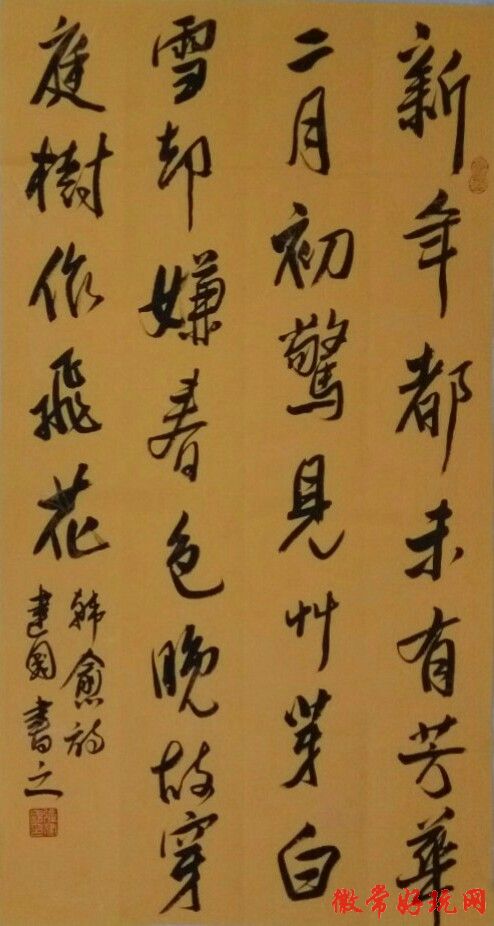 新年都未有芳華
二月初驚見艸芽白
雪却嫌春色晚故穿
庭樹作飛花
韩愈詩
建國書之
徽常好玩网